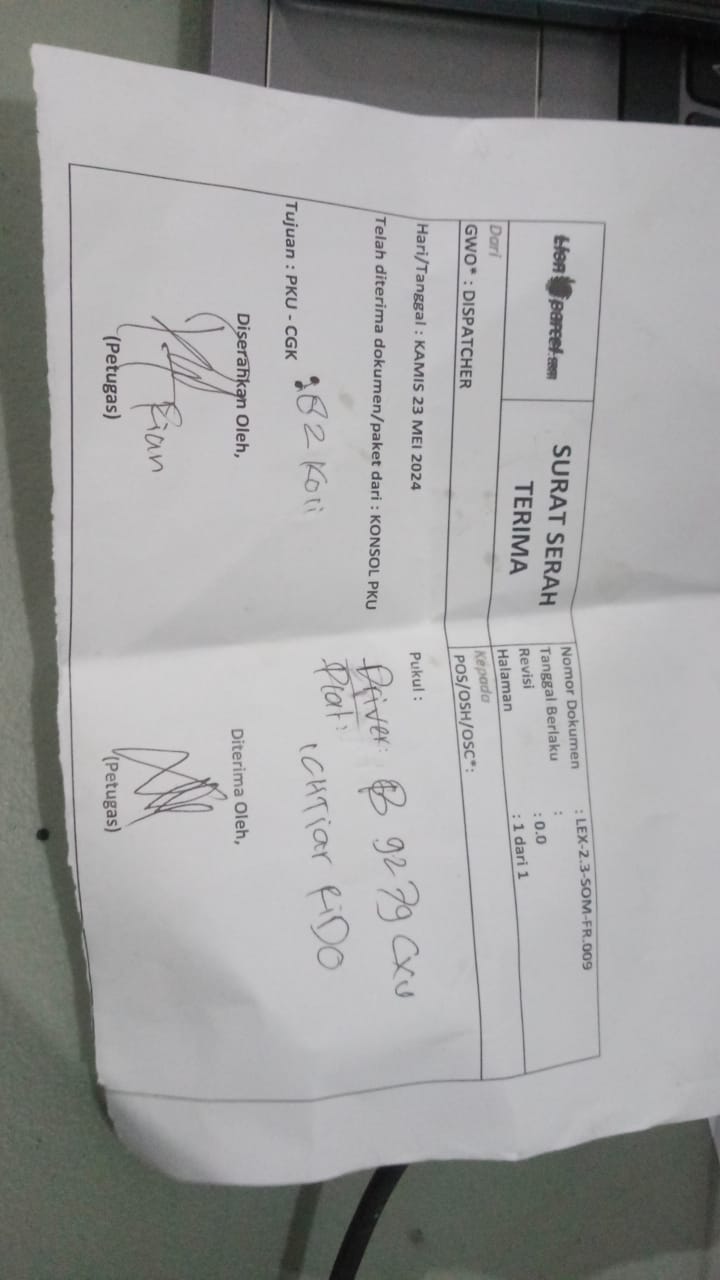 Lion parcel.com
SURAT SERAH
TERIMA
Nomor Dokumen : LEX-2.3-SOM-FR.009
Tanggal Berlaku :
Revisi : 0.0
Halaman : 1 dari 1
Dari
GWO* : DISPATCHER
Kepada
POS/OSH/OSC*:
Hari/Tanggal : KAMIS 23 MEI 2024
Pukul :
Telah diterima dokumen/paket dari : KONSOL PKU
Driver: B 9279 CXU
: 82 Koli
Plat: ICHTIar RiDO
Tujuan : PKU - CGK
Diserahkan Oleh,
Diterima Oleh,
Rian
(Petugas)
(Petugas)